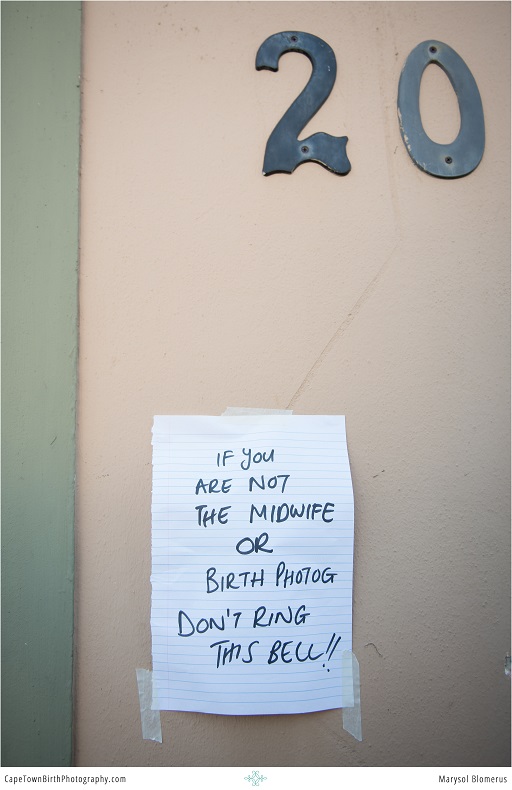 20
IF YOU
ARE NOT
THE MIDWIFE
OR
BIRTH PHOTOG
DON'T RING
THIS BELL!!
CapeTownBirthPhotography.com
Marysol Blomerus